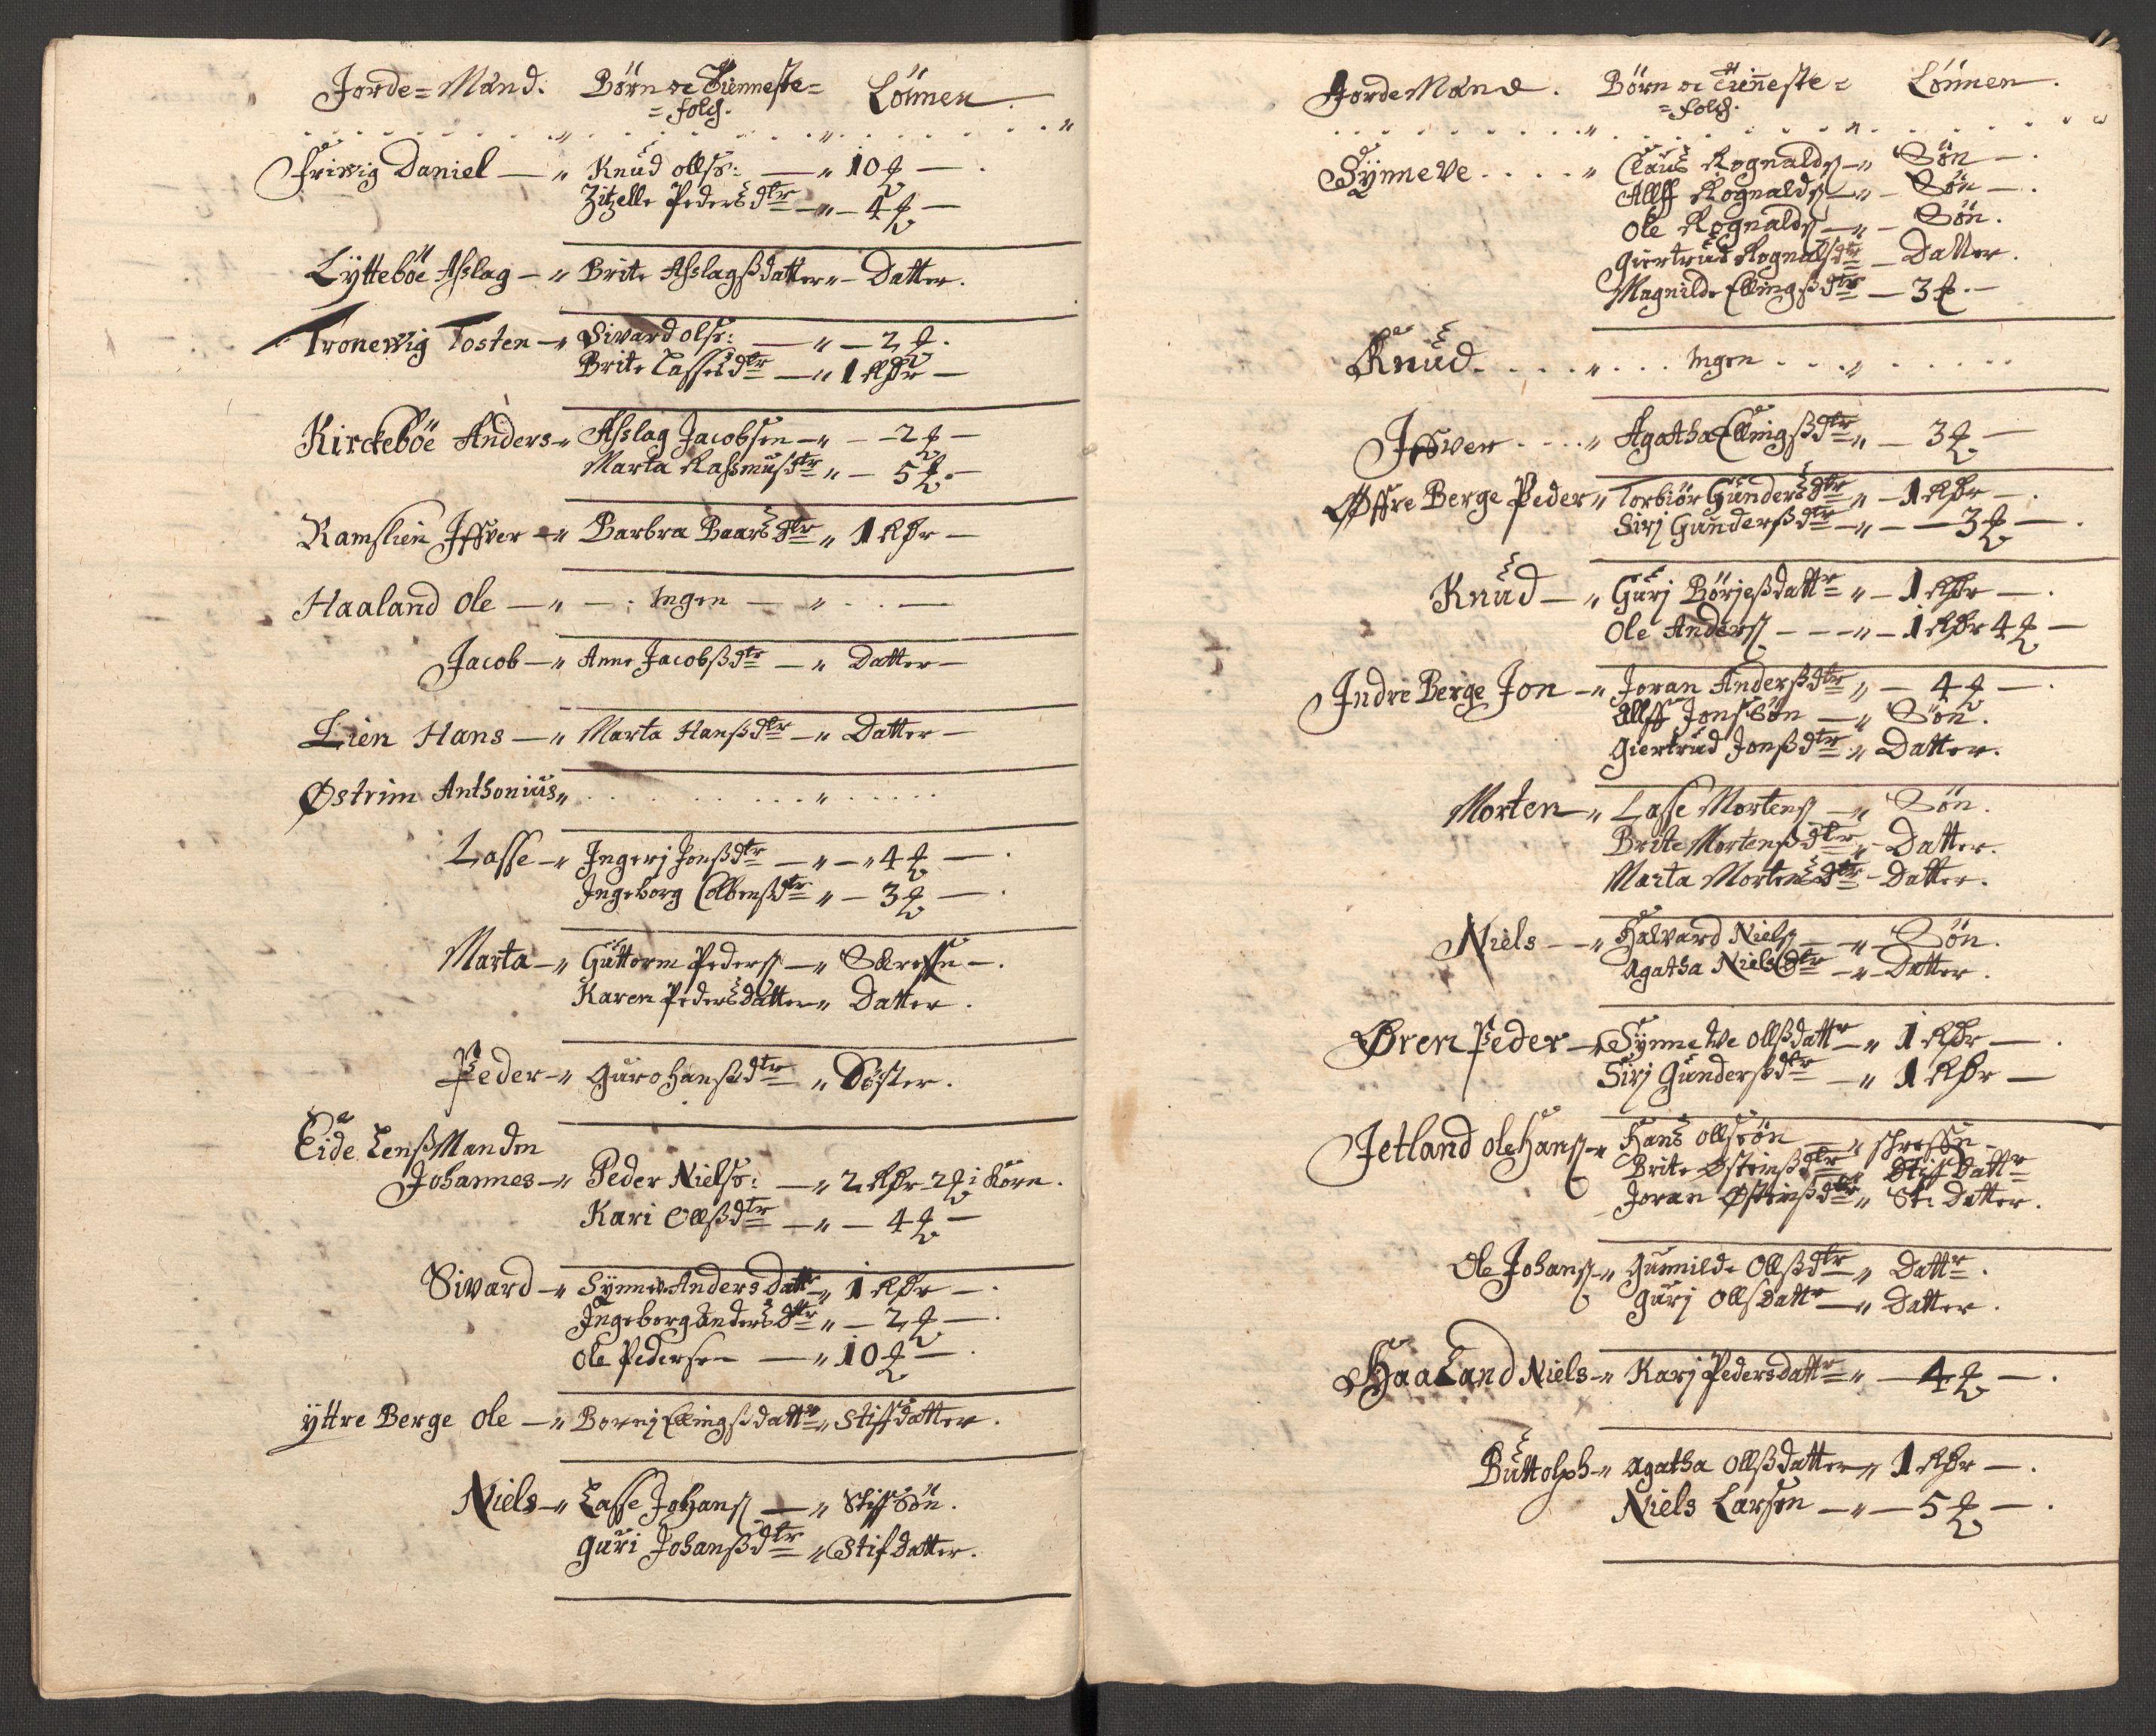 Jorde=Mänd: Börn oc Tienneste= Lönnen.
=folch.
Friwig Daniel — " Knud ollss: — " 10 ꝣ —
Zitzelle Pedersdtr — " — 4 ꝣ —
Lyttebøe Asslag — " Brite Asslagsßdatter " — Datter.
Tronewig Tosten — " Sivard olss: — " — 2 ꝣ.
Brite Lassesdtr — " 1 Rdr —
Kirckeböe Anders — " Asslag Jacobsen — " — 2 ꝣ —
Marta Rassmusdtr " — 5 ꝣ —
Ramslien Iffver — " Barbra Baarsdtr " 1 Rdr —
Haaland Ole — " — : Ingen — " . . —
Jacob — " Anne Jacobßdtr — " Datter —
Lien Hans — " Marta Hanßdtr — " Datter —
Østrim Anthonius " . . . . . " . . . .
Lasse — " Ingerj Jonßdtr — " — " 4 ꝣ — .
Ingeborg Colbenßdtr " — 3 ꝣ — .
Marta — " Guttorm Peders — " — .
Karen Pedersdatter " Datter.
Peder — " Guro Hanßdtr " Söster.
Eide Lenßmanden
Johannes — " Peder Nielss: — " 2 Rdr 2 ꝣ i Korn.
Kari Ollßdtr — " — 4 ꝣ —
Sivard — " Synnev Anders Dattr " 1 Rdr — .
Ingeborg Andersdtr " — 2 ꝣ — .
Ole Pedersen — " 10 ꝣ — .
yttre Berge Ole — " Bornj Ellingsßdattr " Stifdatter.
Niels — " Lasse Johans — " Stiffsön.
Guri Johanßdtr " Stifdatter.
Jorde Mänd. Börn oc Tienneste= Lönnen.
=folch.
Synneve . . . . " Claus Rognalds — " Sön — .
Allff Rognalds — " — Sön — .
Ole Rognalds — " — Sön.
Giertrud Rognalsdtr — Datter.
Magnilde Ellingsßdtr — 3 ꝣ. —
Knud . . . . " . . . Ingen . . . " . . . .
Iffwer . . . . " Agatha Ellingsßdtr " — 3 ꝣ —
Øffre Berge Peder " Torbiör Gundersdtr " — 1 Rdr — .
Sirj Gunderßdtr — " — — 3 ꝣ — .
Knud — " Gurj Börjeßdattr " — 1 Rdr — .
Ole Anders — — — " — 1 Rdr 4 ꝣ —
Indre Berge Jon — " Joran Anderßdtr " — 4 ꝣ — .
Allff Jonssön — " Sön.
Giertrud Jonßdtr " Datter.
Morten — " Lasse Mortens — " Sön.
Brite Mortenßdtr " Datter.
Marta Mortensdtr — Datter.
Niels — " Halvard Niels — " — Sön.
Agatha Nielsdtr — " — Datter.
Øren Peder — " Synnewe Ollßdattr — " 1 Rdr — .
Sirj Gunderßdtr — " 1 Rdr —
Jetland Ole Hans — " Hans Ollssön — "
Brite Østenßdtr " Stiffdattr
Joran Østenßdtr " Sti: Datter.
Ole Johans — " Gunnilde Ollßdtr — " Dattr.
Gurj Ollsdattr — " Datter.
Haaland Niels — " Karj Pedersdattr " — 4 ꝣ — .
Buttolph — " Agatha Ollßdatter " 1 Rdr — .
Niels Larsen — " — 5 ꝣ — .